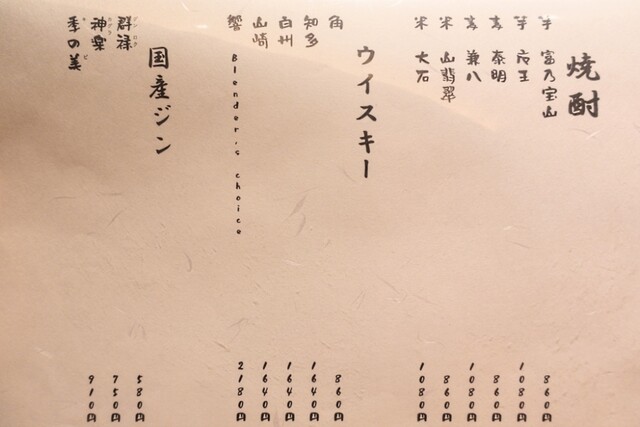 焼酎
芋 富乃宝山 860円
芋 魔王 1080円
麦 泰明 860円
麦 兼八 1080円
米 山翡翠 860円
米 大石 1080円
ウイスキー
角 860円
知多 1640円
白州 1640円
山崎 1640円
響 Blender's choice 2180円
国産ジン
群禄 580円
神楽 750円
季の美 910円